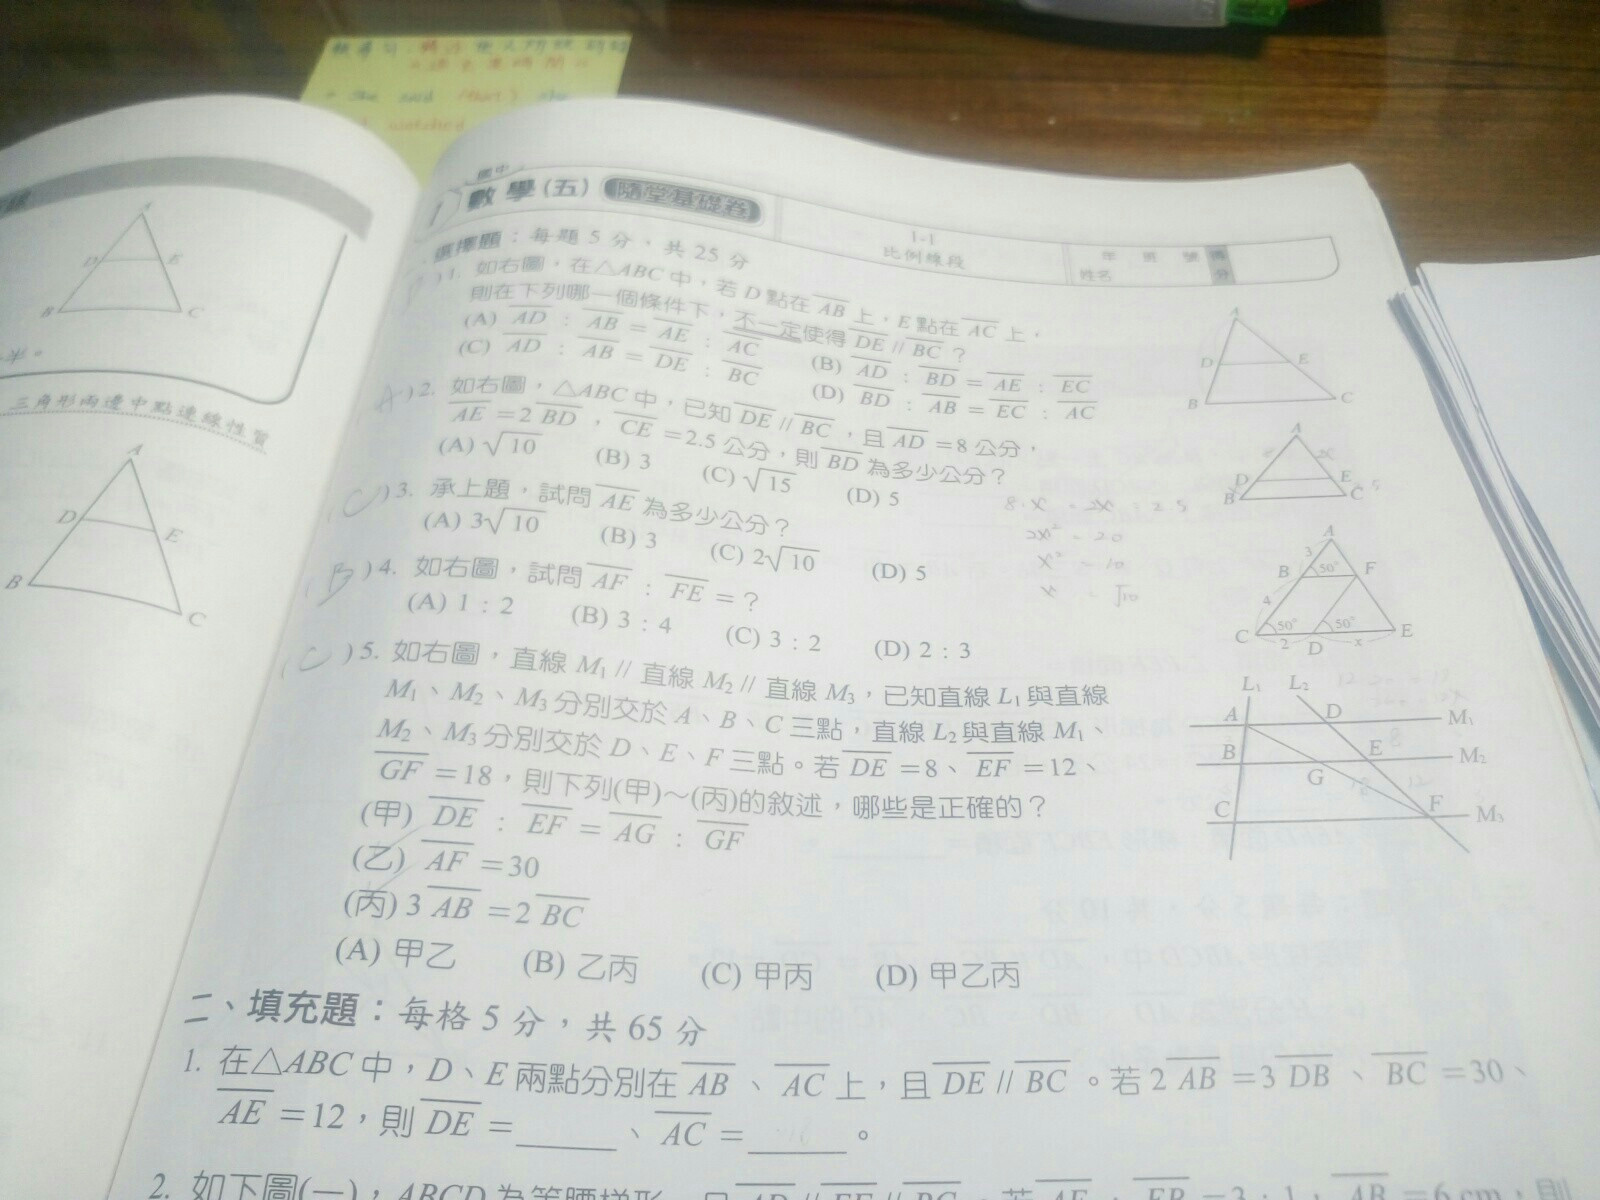 三角形兩邊中點連線性質
A
D
E
B
C
數學(五) 隨堂基礎卷
1-1
比例線段
年 班 號
姓名
得分
選擇題：每題5分，共25分
)1. 如右圖，在△ABC中，若D點在AB上，E點在AC上，
則在下列哪一個條件下，不一定使得DE // BC？
(A) AD：AB = AE：AC (B) AD：BD = AE：EC
(C) AD：AB = DE：BC (D) BD：AB = EC：AC
(A)2. 如右圖，△ABC中，已知DE // BC，且AD =8公分，
AE =2 BD，CE =2.5公分，則BD為多少公分？
(A) √10 (B) 3 (C) √15 (D) 5
(C)3. 承上題，試問AE為多少公分？
(A) 3√10 (B) 3 (C) 2√10 (D) 5
(B)4. 如右圖，試問AF：FE =？
(A) 1：2 (B) 3：4 (C) 3：2 (D) 2：3
(C)5. 如右圖，直線M₁ // 直線M₂ // 直線M₃，已知直線L₁與直線
M₁、M₂、M₃分別交於A、B、C三點，直線L₂與直線M₁、
M₂、M₃分別交於D、E、F三點。若DE =8、EF =12、
GF =18，則下列(甲)～(丙)的敘述，哪些是正確的？
(甲) DE：EF = AG：GF
(乙) AF =30
(丙) 3 AB =2 BC
(A) 甲乙 (B) 乙丙 (C) 甲丙 (D) 甲乙丙
A
D E
B C
A
D E
B C
A
3
B 50° F
4
C 50° 50° E
2 D x
L₁ L₂
A D M₁
B E M₂
G
C F M₃
2x² = 20
x² = 10
x = √10
二、填充題：每格5分，共65分
1. 在△ABC中，D、E兩點分別在AB、AC上，且DE // BC。若2 AB =3 DB、BC =30、
AE =12，則DE =______、AC =______。
2. 如下圖(一)，ABCD為等腰梯形，且AD // EF // BC。若AE：EB =3：1，AB =6 cm，則